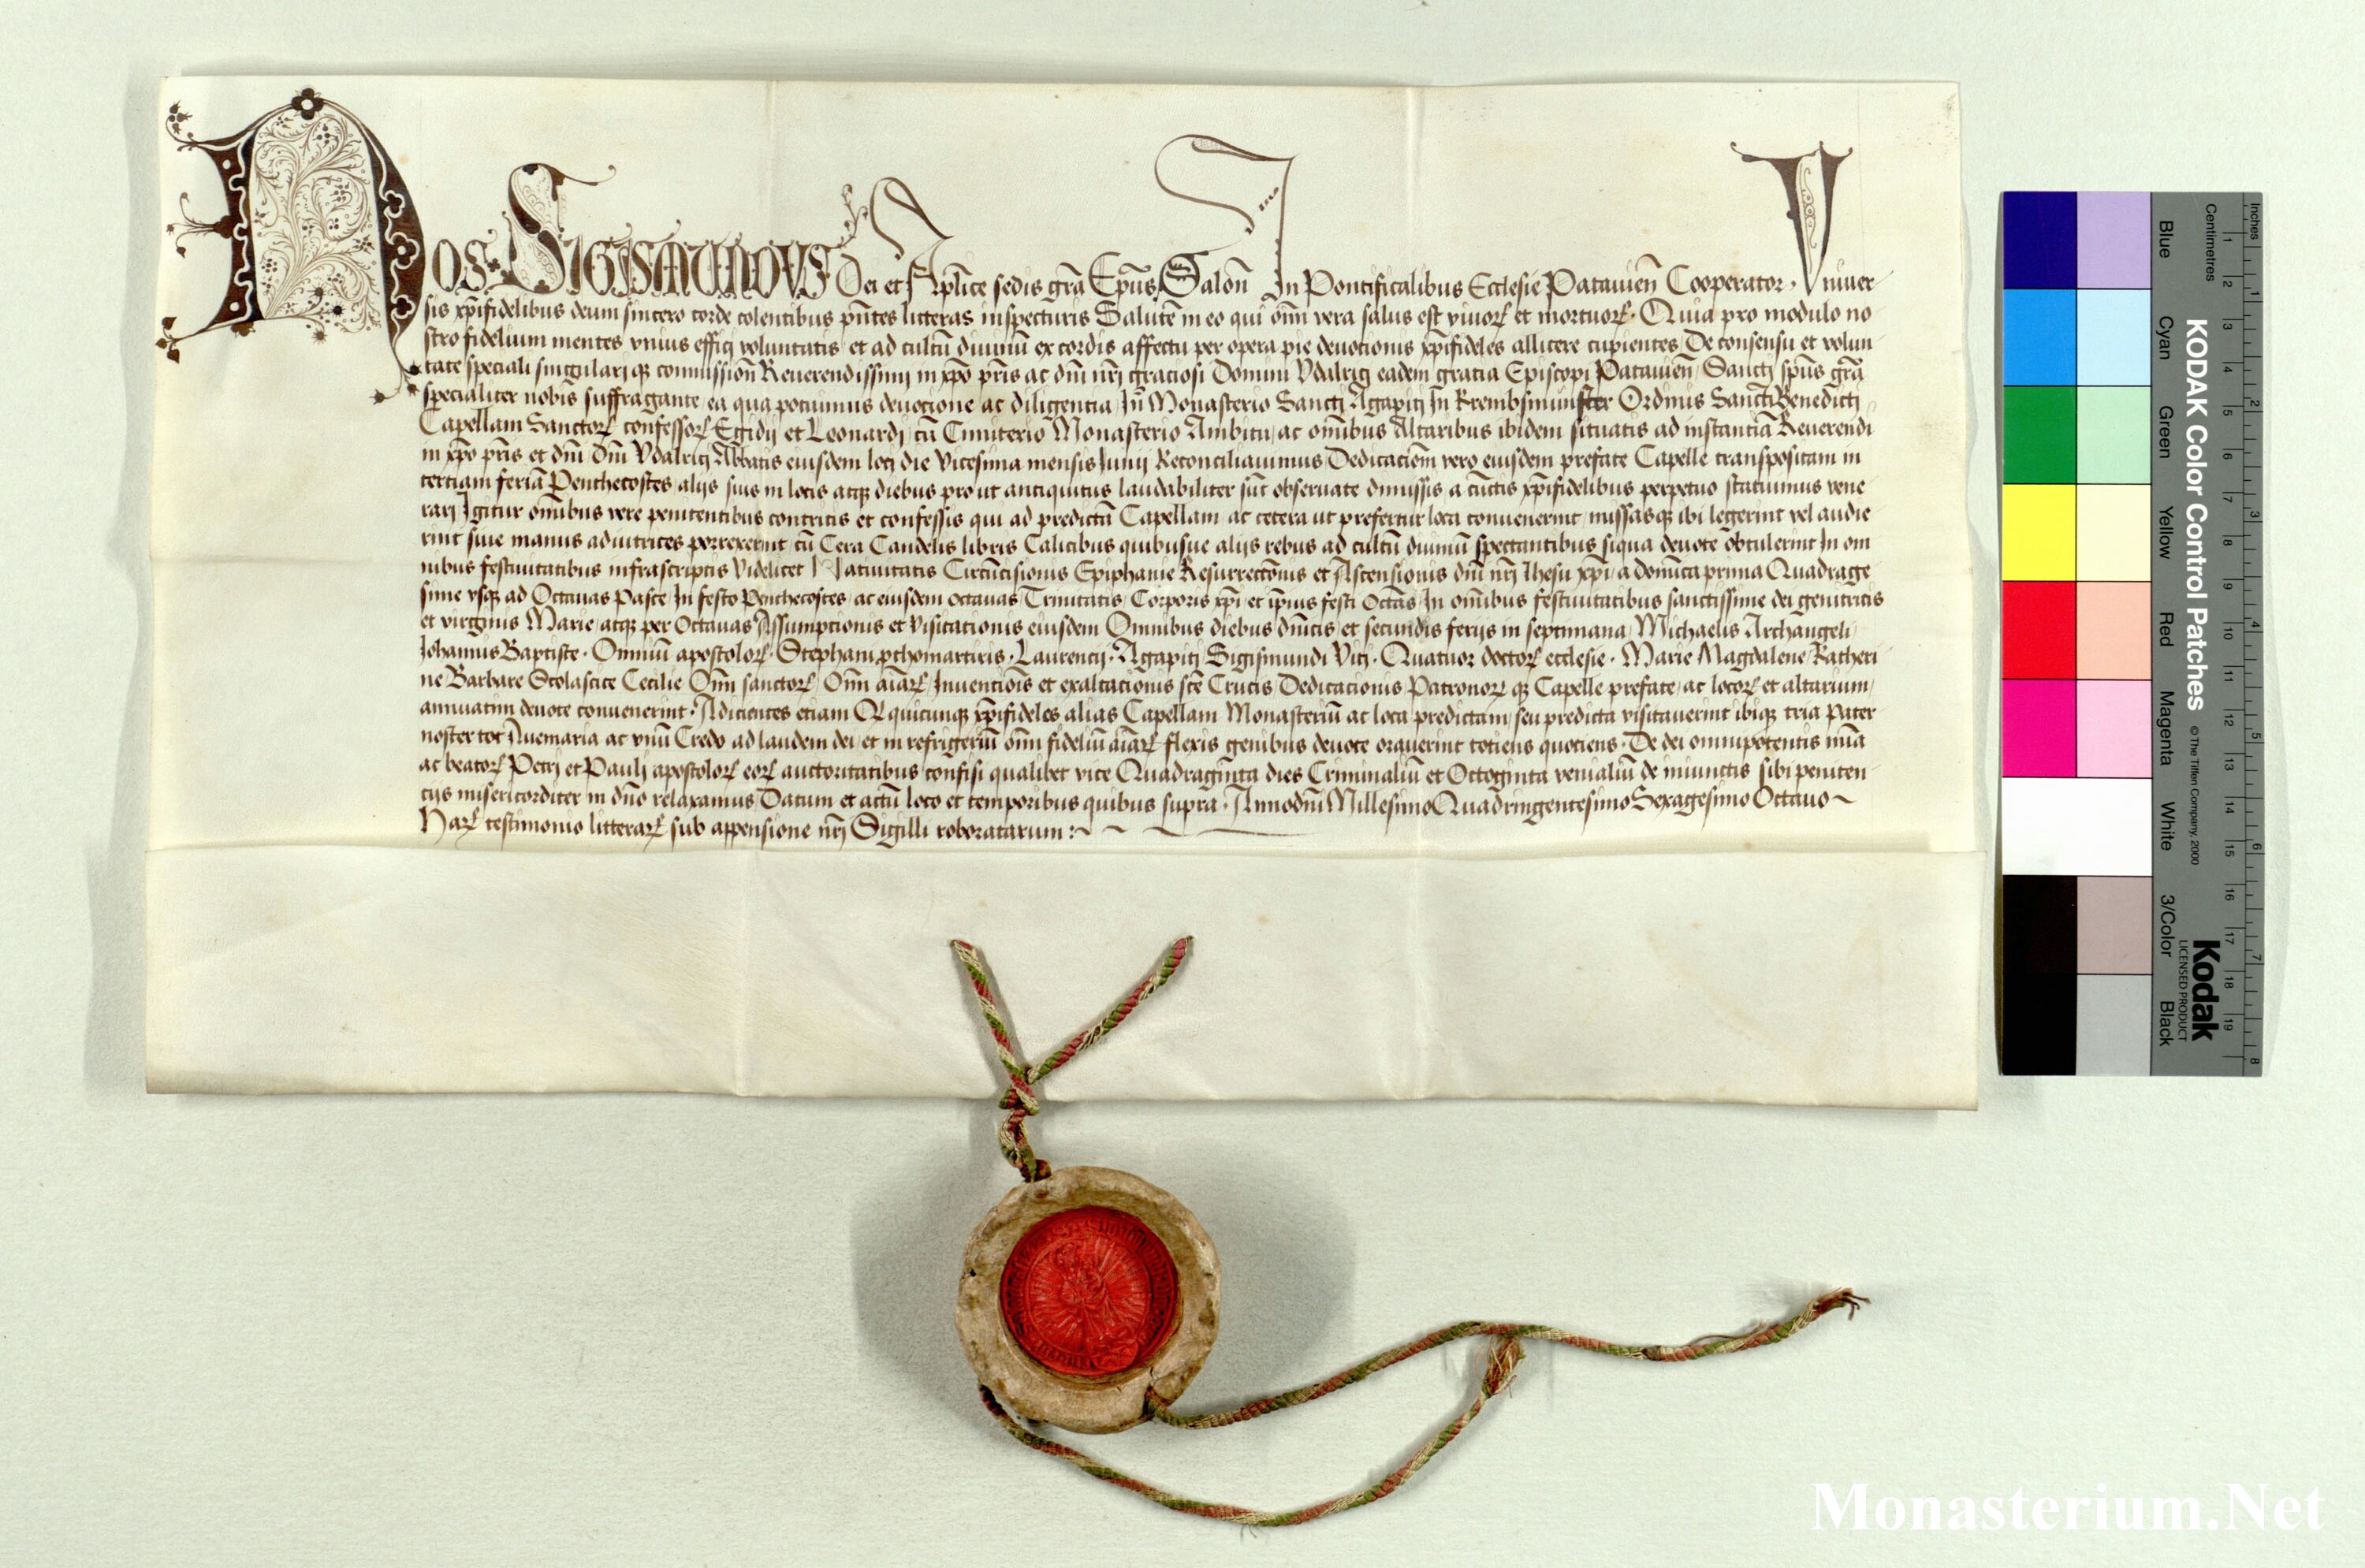 Nos Sigismundus Dei et Aplice sedis grã Epus Salon̄ In Pontificalibus Ecclesie Patauien̄ Cooperator. Vniuer
sis xp̄ifidelibus deum sincero corde colentibus pn̄tes litteras inspecturis Salutē in eo qui om̄i vera salus est viuoꝝ et mortuoꝝ. Quia pro modulo no
stro fidelium mentes vnius effici voluntatis et ad cultū diuinū ex cordis affectu per opera pie deuotionis xp̄ifideles allicere cupientes De consensu et volun
tate speciali singulariqꝫ commission̄ Reuerendissimi in xp̄o pr̄is ac dn̄i nr̄i graciosi Domini Vdalrici eadem gratia Episcopi Patauien̄ Sancti sp̄us grã
specialiter nobis suffragante ea qua potuimus deuocione ac diligentia In Monasterio Sancti Agapiti In Krembsmunster Ordinis Sancti Benedicti
Capellam Sanctoꝝ confessoꝝ Egidij et Leonardi cū Cimiterio Monasterio Ambitu ac om̄ibus Altaribus ibidem situatis ad instantiā Reuerendi
in xp̄o pr̄is et dn̄i dn̄i Vdalrici Abbatis eiusdem loci die Vicesima mensis Junij Reconciliauimus Dedicationē vero eiusdem prefate Capelle transpositam in
terciam feriā Penthecostes alijs suis in locis atqꝫ diebus prout antiquitus laudabiliter sūt obseruate dimissis a cūctis xp̄ifidelibus perpetuo statuimus vene
rari Igitur om̄ibus vere penitentibus contritis et confessis qui ad predictā Capellam ac cetera ut prefertur loca conuenerint missasqꝫ ibi legerint vel audie
rint siue manus adiutrices porrexerint cū Cera Candelis libris Calicibus quibusue alijs rebus ad cultū diuinū spectantibus siqua deuote obtulerint In om
nibus festiuitatibus infrascriptis Videlicet Natiuitatis Circūcisionis Epiphanie Resurrectōnis et Ascensionis dn̄i nr̄i Jhesu xp̄i a dominica prima Quadrage
sime vsqꝫ ad Octauas Pasce In festo Penthecostes ac eiusdem octauas Trinitatis Corporis xp̄i et ip̄ius festi Octās In om̄ibus festiuitatibus sanctissime dei genitricis
et virginis Marie atqꝫ per Octauas Assumptionis et Visitacionis eiusdem Omnibus diebus dn̄icis et secundis ferijs in septimana Michaelis Archangeli
Johannis Baptiste. Omniū apostoloꝝ. Stephani ꝓthomartiris. Laurencij. Agapiti Sigismundi Viti. Quatuor doctoꝝ ecclesie. Marie Magdalene Katheri
ne Barbare Scolastice Cecilie Om̄i sanctoꝝ Om̄i aīaꝝ Inuentiōis et exaltacionis scē Crucis Dedicacionis Patronoꝝ qꝫ Capelle prefate ac locoꝝ et altarium
annuatim deuote conuenerint. Adicientes etiam Qꝫ quicunqꝫ xp̄ifideles alias Capellam Monasteriū ac loca predictam seu predicta visitauerint ibiqꝫ tria Pater
noster tot Auemaria ac vnū Credo ad laudem dei et in refrigeriū om̄i fideliū aīaꝝ flexis genibus deuote orauerint totiens quotiens. De dei omnipotentis mīa
ac beatoꝝ Petri et Pauli apostoloꝝ eoꝝ auctoritatibus confisi qualibet vice Quadraginta dies Criminaliū et Octoginta venialiū de iniunctis sibi peniten
cijs misericorditer in dn̄o relaxamus Datum et actū loco et temporibus quibus supra. Anno dn̄i Millesimo Quadringentesimo Sexagesimo Octauo
Haꝝ testimonio litteraꝝ sub appensione nr̄i Sigilli roboratarum:
Inches
Centimetres
1 2 3 4 5 6 7 8 9 10 11 12 13 14 15 16 17 18 19
1 2 3 4 5 6 7 8
KODAK Color Control Patches © The Tiffen Company, 2000
Kodak
LICENSED PRODUCT
Blue Cyan Green Yellow Red Magenta White 3/Color Black
Monasterium.Net